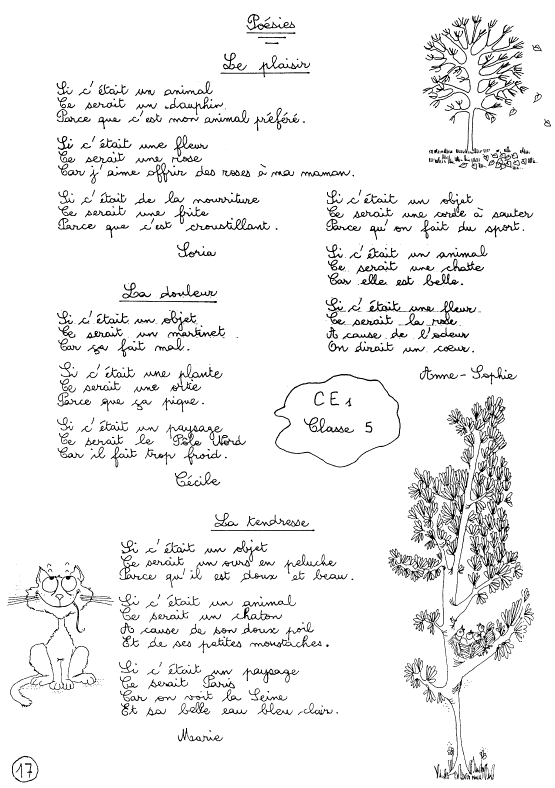 Poésies
Le plaisir
Si c'était un animal
Ce serait un dauphin
Parce que c'est mon animal préféré.
Si c'était une fleur
Ce serait une rose
Car j'aime offrir des roses à ma maman.
Si c'était de la nourriture
Ce serait une frite
Parce que c'est croustillant.
Soria
Si c'était un objet
Ce serait une corde à sauter
Parce qu'on fait du sport.
Si c'était un animal
Ce serait une chatte
Car elle est belle.
Si c'était une fleur
Ce serait la rose
A cause de l'odeur
On dirait un cœur.
Anne-Sophie
La douleur
Si c'était un objet
Ce serait un martinet
Car ça fait mal.
Si c'était une plante
Ce serait une ortie
Parce que ça pique.
Si c'était un paysage
Ce serait le Pôle Nord
Car il fait trop froid.
Cécile
CE1
Classe 5
La tendresse
Si c'était un objet
Ce serait un ours en peluche
Parce qu'il est doux et beau.
Si c'était un animal
Ce serait un chaton
A cause de son doux poil
Et de ses petites moustaches.
Si c'était un paysage
Ce serait Paris
Car on voit la Seine
Et sa belle eau bleu clair.
Marie
17